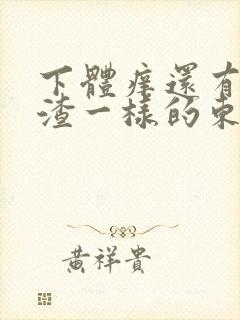 下體痒還有
渣一樣的東
黃祥貴